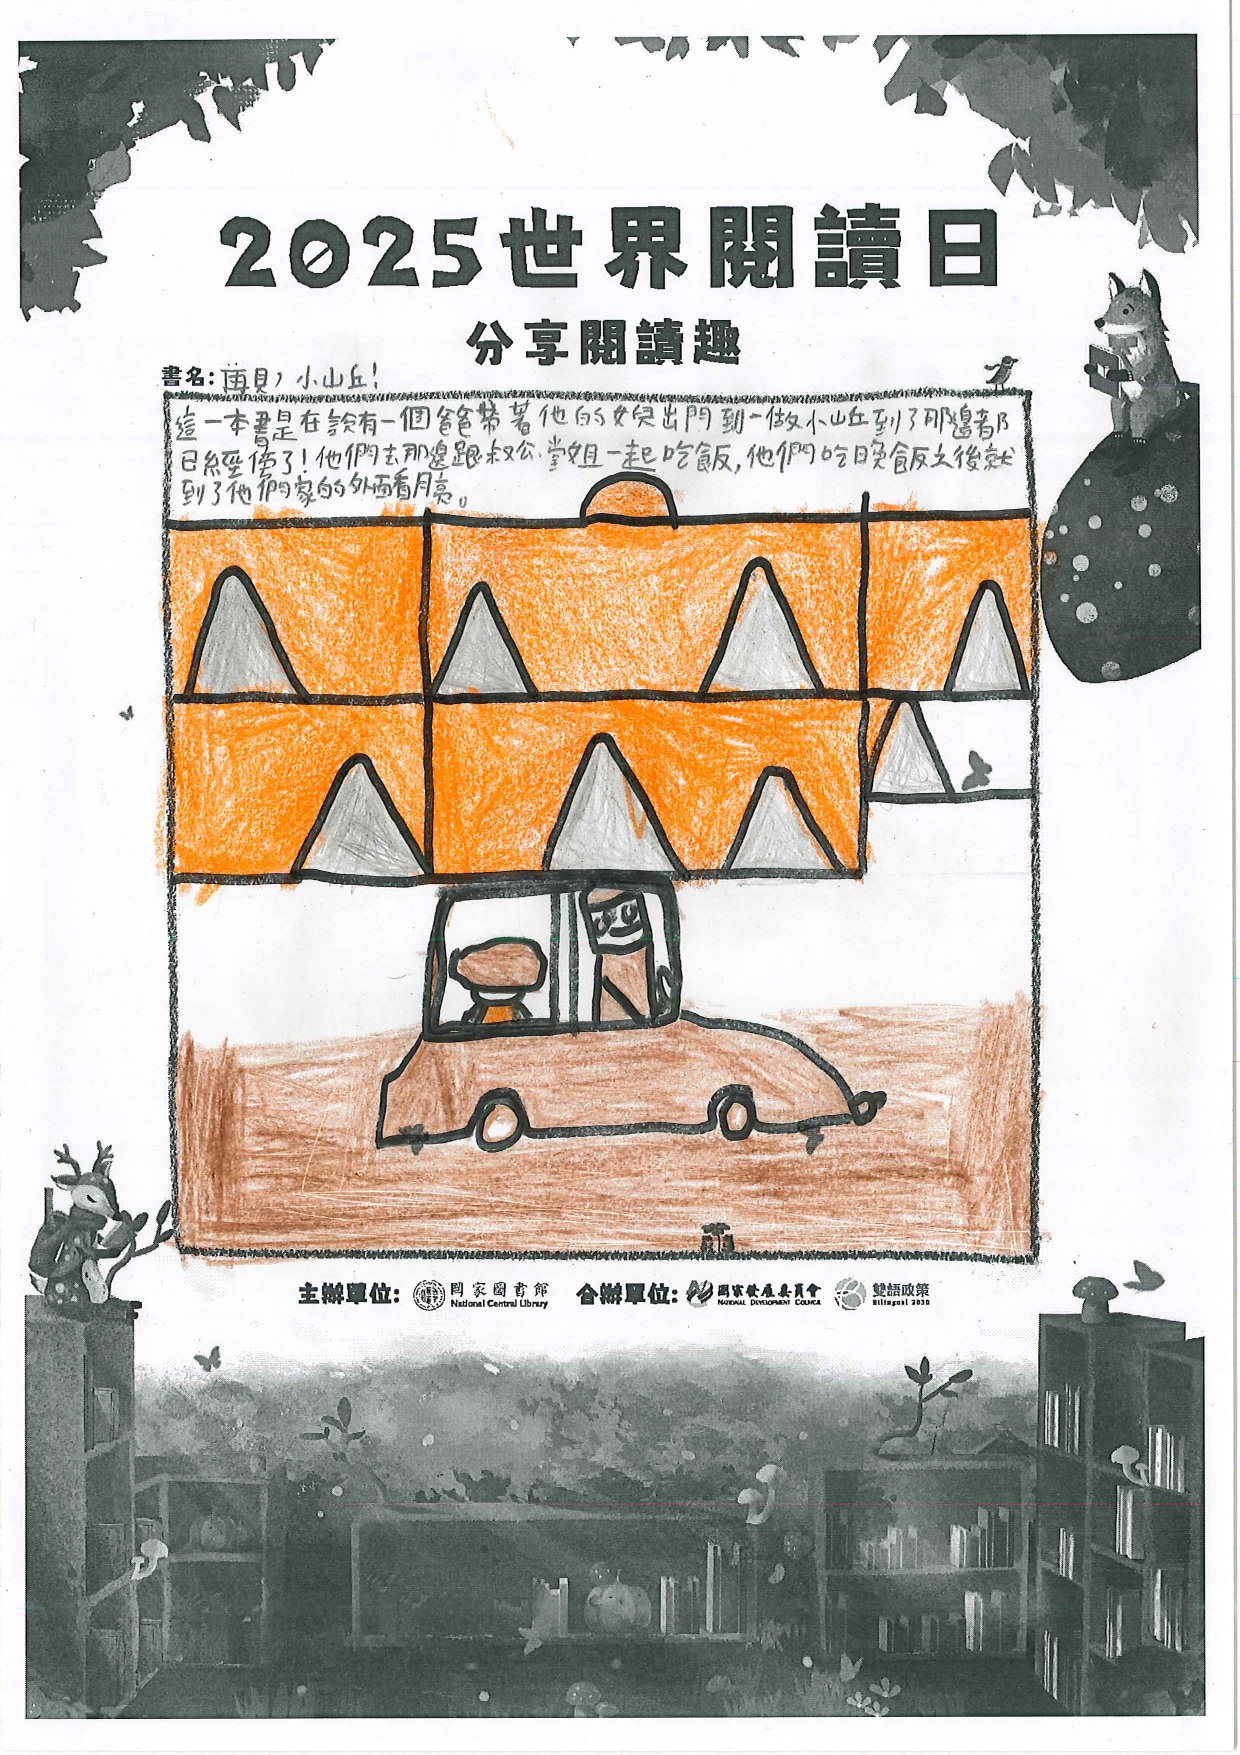 2025世界閱讀日
分享閱讀趣
書名：再見，小山丘！
這一本書是在說有一個爸爸帶著他的女兒出門到一做小山丘到了那邊都
已經傍了！他們去那邊跟叔公、堂姐一起吃飯，他們吃晚飯之後就
到了他們家的外面看月亮。
主辦單位： 國家圖書館 合辦單位： 國家發展委員會 雙語政策
National Central Library NATIONAL DEVELOPMENT COUNCIL Bilingual 2030